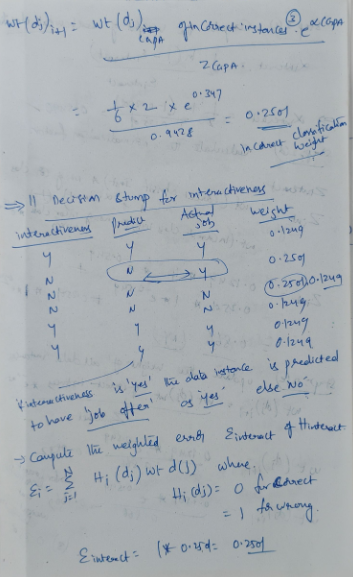 wt(dj)i+1 = wt(dj)i CGPA of incorrect instances. e^αCGPA
ZCGPA
= 1/6 × 2 × e^0.347 = 0.2501
0.9428
incorrect classification
weight
=> 11 Decision stump for interactiveness
interactiveness Predict Actual job weight
Y Y Y 0.1249
N N Y 0.2501
N N N 0.2501 0.1249
N N N 0.1249
Y Y Y 0.1249
Y Y Y 0.1249
if interactiveness is 'yes' the data instance is predicted
to have 'job offer' as 'yes' else 'No'
→ Compute the weighted error Einteract of Hinteract
Ei = N Σ j=1 Hi (dj) wt d(j) where,
Hi (dj) = 0 for correct
= 1 for wrong.
Einteract = 1 * 0.2501 = 0.2501